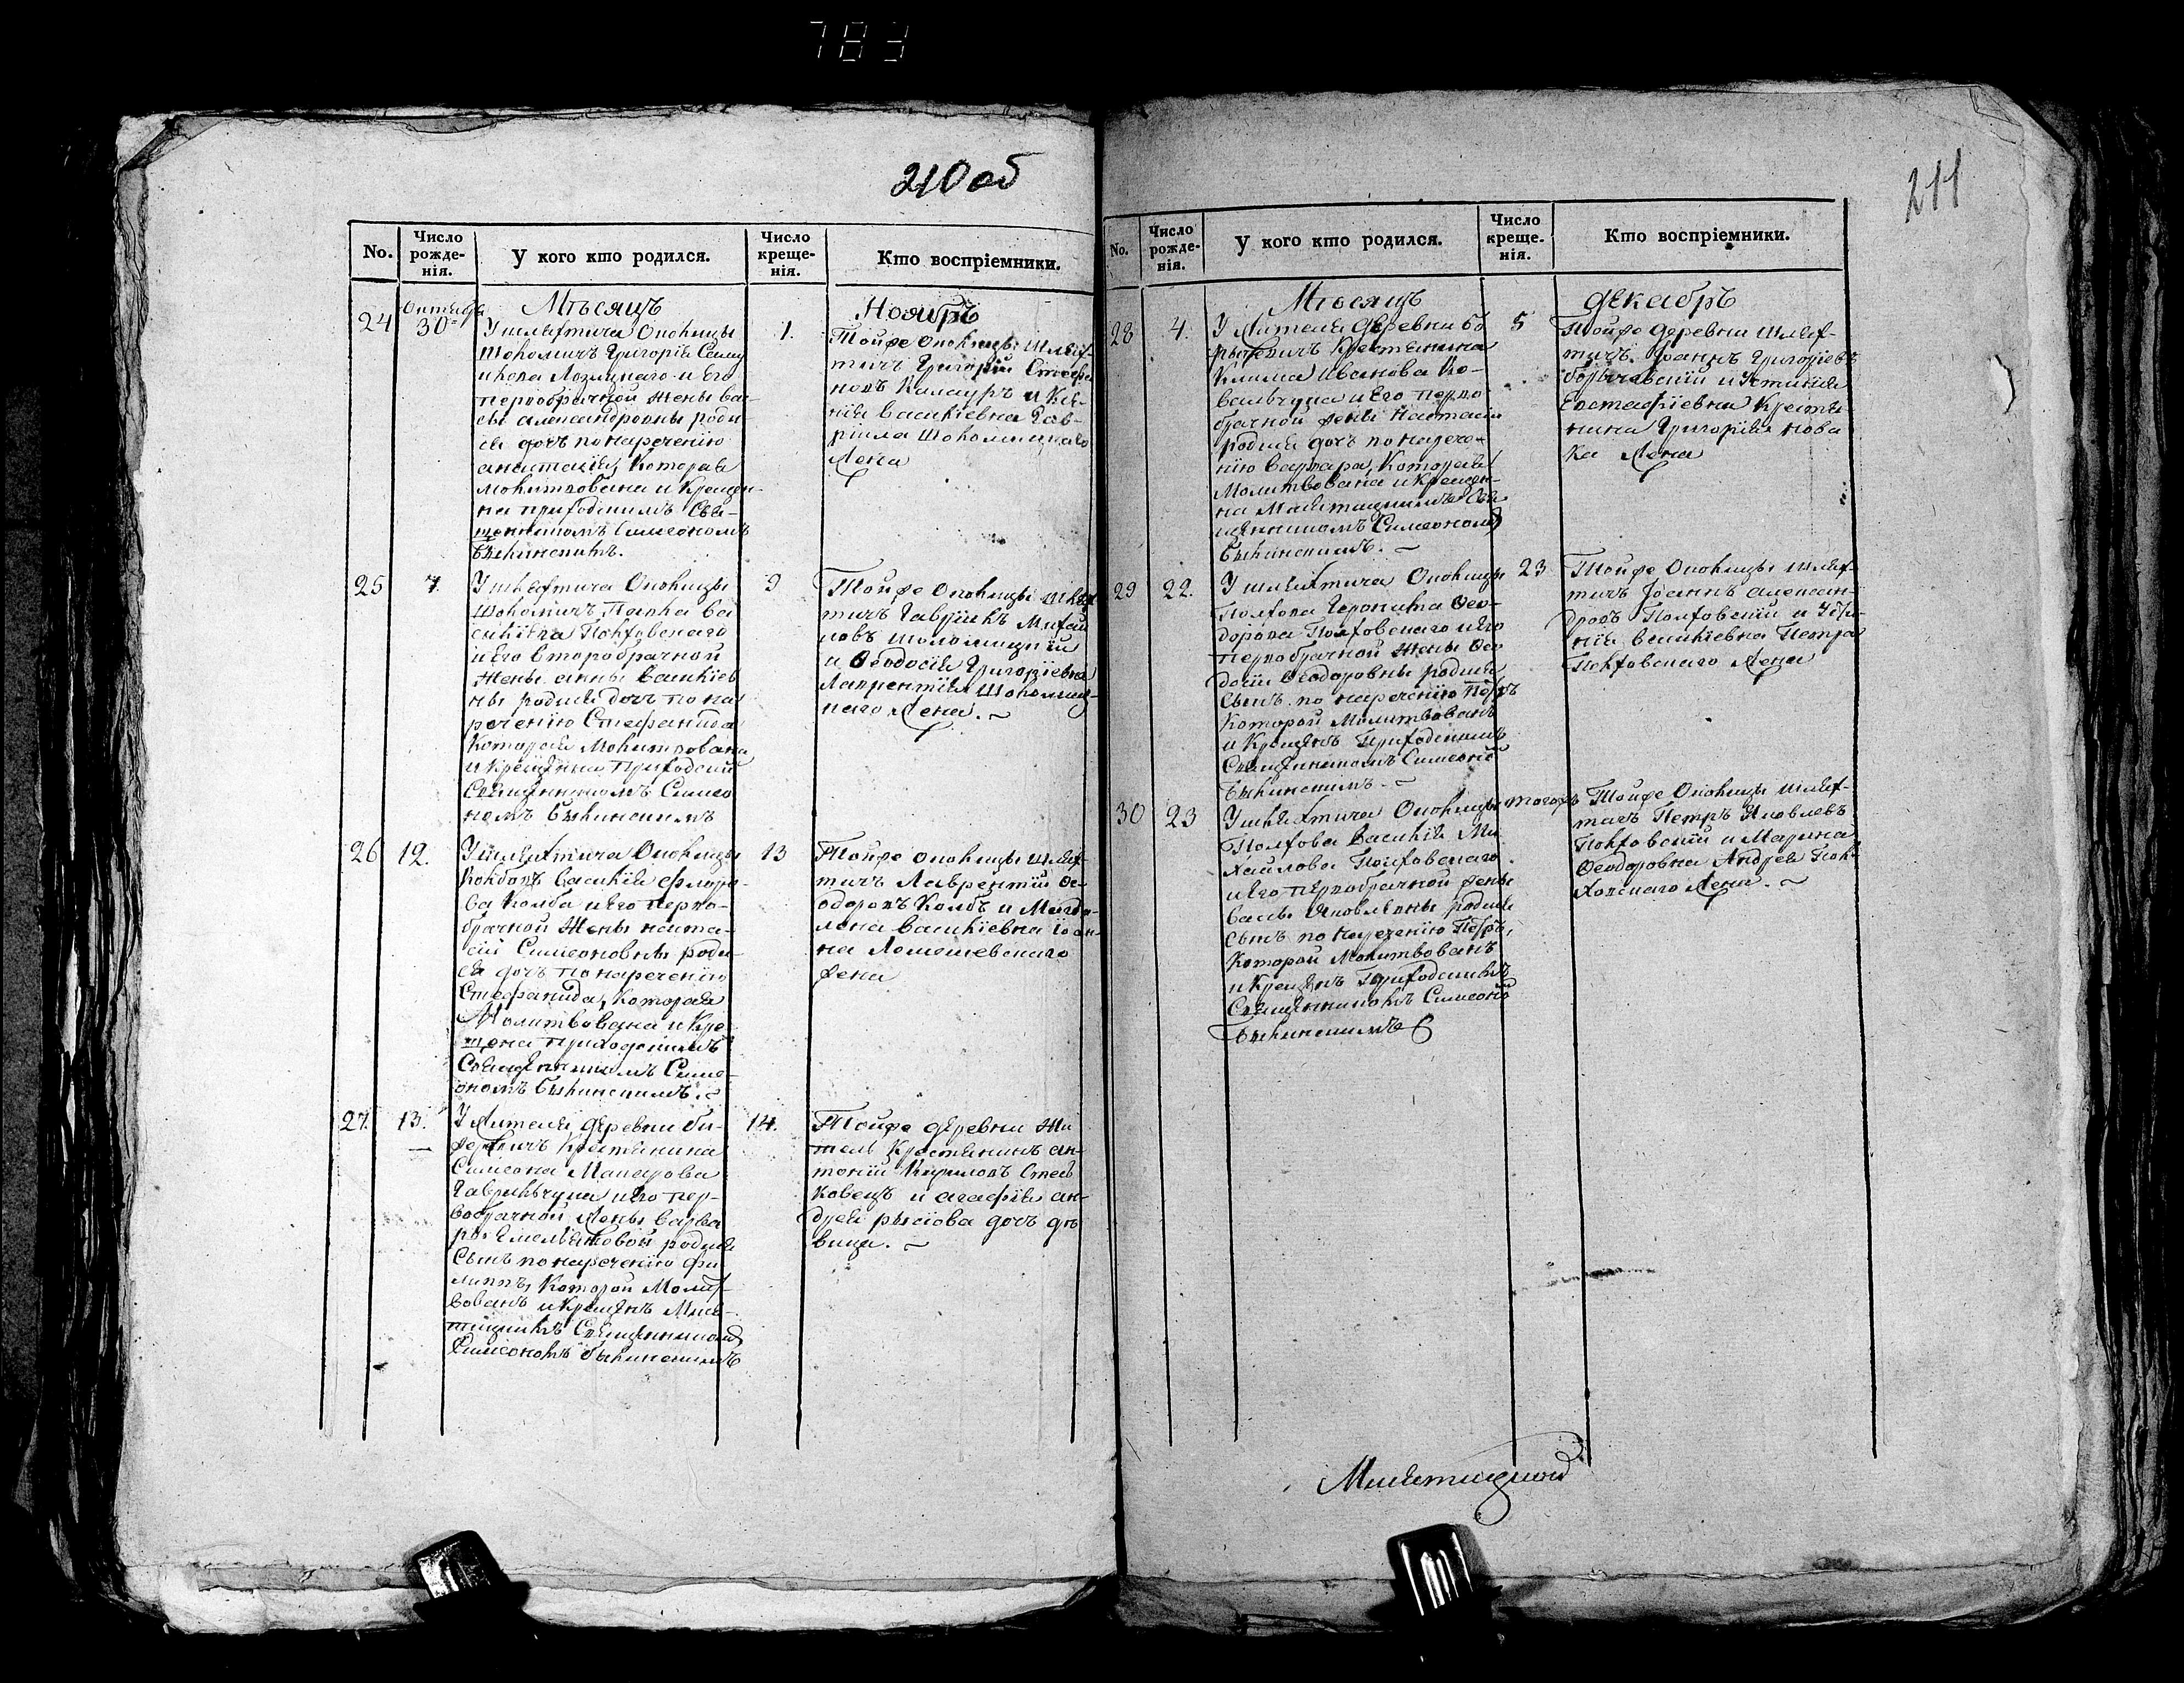 783
210 об
No.
Число
рожде-
нія.
У кого кто родился.
Число
креще-
нія.
Кто воспріемники.
Мѣсяцъ
Ноябрь
24
Октября
30
У шляхтича Околицы
Шоломичъ Григорія Саму
илова и его
первобрачной жены Ва
сы Александровны роди
ся дочь по наречению
Анастасія, которая
молитвована и креще-
на приходскимъ Свя-
щенникомъ Симеономъ
Былинскимъ.
1.
Тойже Околицы шлях-
тичъ Григорій Стефа
новъ и
Василіевна Гав-
ріила Шоломицкаго
жена
25
7.
У шляхтича Околицы
Шоломичъ Павла Ва
силіева Полховскаго
и его второбрачной
жены Анны Василіев
ны родися дочь по на
речению Стефанида
которая молитвована
и крещенна приходскимъ
Священникомъ Симео
номъ Былинскимъ
9
Тойже Околицы шлях
тичъ Гавріилъ Михай
ловъ Шоломицкій
и Феодосія Григоріевна
Лаврентія Шоломиц-
каго жена.
26
12.
У шляхтича Околицы
Колбовъ Василія Флоро-
ва Колба и его перво-
брачной жены Наста-
сіи Симеоновны роди-
ся дочь по наречению
Стефанида, которая
молитвована и кре-
щена приходскимъ
Священникомъ Симе-
ономъ Былинскимъ.
13
Тойже Околицы шлях-
тичъ Лаврентій Фе-
одоровъ Колбъ и Магда-
лена Василіевна Іоан-
на Лемешевскаго
жена
27.
13.
У жителя деревни
крестянина
Симеона Макарова
Гаврильчука и его пер-
вобрачной жены Варва
ры Емельяновой родися
сынъ по наречению Фи
липпъ, которой молит-
вованъ и крещенъ Мля-
тицкимъ Священникомъ
Симеономъ Былинскимъ
14.
Тойже деревни жи
тель крестянинъ Ан-
тоній Кириловъ
и Агафія Ан-
дрея дочь дѣ
вица.
211
No.
Число
рожде-
нія.
У кого кто родился.
Число
креще-
нія.
Кто воспріемники.
Мѣсяцъ
Декабрь
28
4.
У жителя деревни Бо
рычевичъ крестянина
Клима Иванова Ко-
вальчука и его перво
брачной жены Настасіи
родися дочь по нарече-
нію Варвара, которая
молитвована и крещен-
на Млятицкимъ Свя-
щенникомъ Симеономъ
Былинскимъ.
5
Тойже деревни шлях-
тичъ Григоріевъ
и Устинія
Евстафіевна крестя-
нина Григорія Нова
ка жена
29
22.
У шляхтича Околицы
Полхова Героніма Фео-
дорова Полховскаго и его
первобрачной жены Фео
досіи Феодоровны родися
сынъ по наречению Петръ
которой молитвованъ
и крещенъ приходскимъ
Священникомъ Симеоно
Былинскимъ.
23
Тойже Околицы шлях-
тичъ Іоаннъ Алексан-
дровъ Полховскій и
Василіевна Петра
Полховскаго жена
30
23
У шляхтича Околицы
Полхова Василія Ми
хайлова Полховскаго
и его первобрачной жены
Васы Яковлевны родися
сынъ по наречению Петръ,
которой молитвованъ
и крещенъ приходскимъ
Священникомъ Симеоно
Былинскимъ
тогожъ
Тойже Околицы шлях-
тичъ Петръ Яковлевъ
Полховскій и Марина
Феодоровна Андрея Пол-
ховскаго жена.